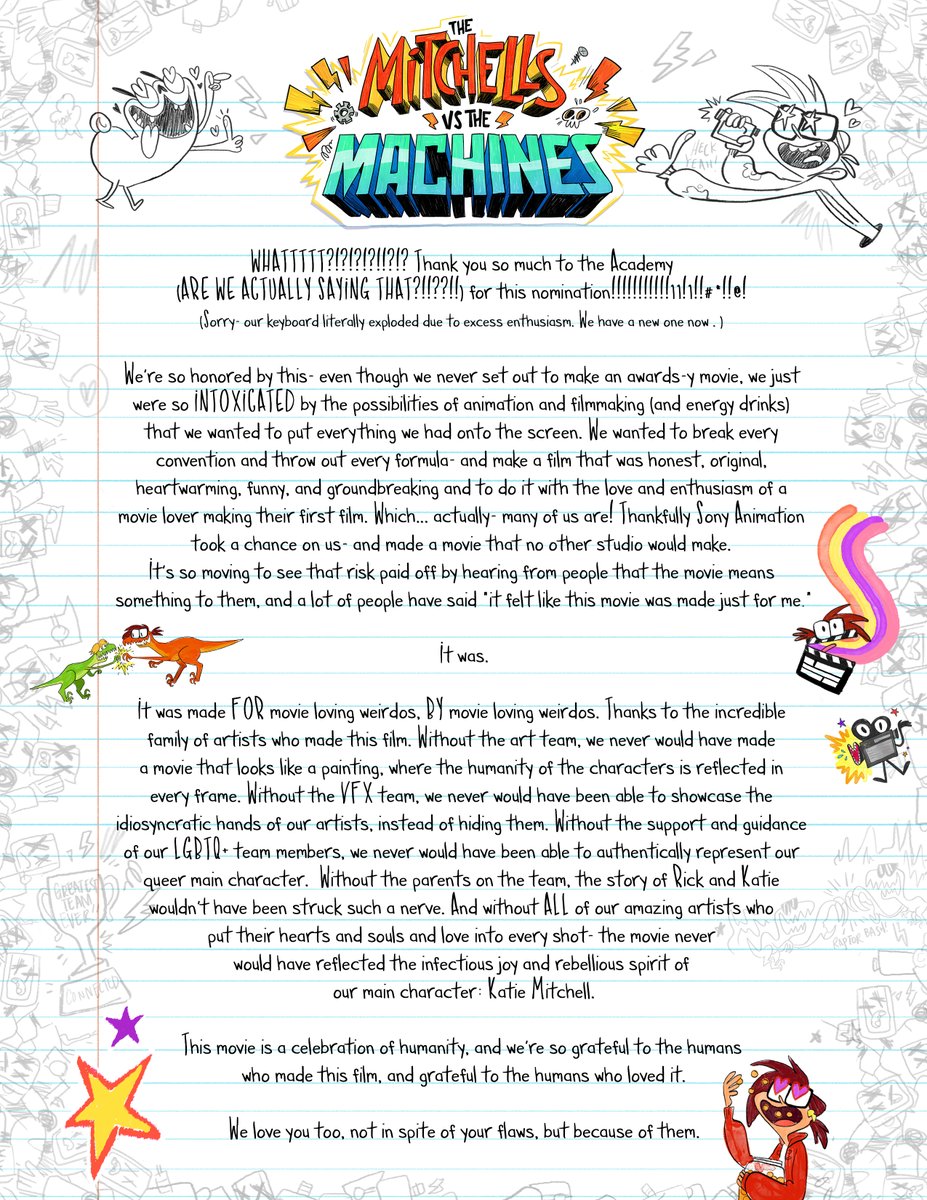 THE
MITCHELLS
VS THE
MACHINES
HECK
YEAH!
WHATTTTT?!?!?!?!!?!? Thank you so much to the Academy
(ARE WE ACTUALLY SAYING THAT?!!??!!) for this nomination!!!!!!!!!!!!11!1!!#*!!@!
(Sorry- our keyboard literally exploded due to excess enthusiasm. We have a new one now . )
We're so honored by this- even though we never set out to make an awards-y movie, we just
were so INTOXICATED by the possibilities of animation and filmmaking (and energy drinks)
that we wanted to put everything we had onto the screen. We wanted to break every
convention and throw out every formula- and make a film that was honest, original,
heartwarming, funny, and groundbreaking and to do it with the love and enthusiasm of a
movie lover making their first film. Which... actually- many of us are! Thankfully Sony Animation
took a chance on us- and made a movie that no other studio would make.
It's so moving to see that risk paid off by hearing from people that the movie means
something to them, and a lot of people have said "it felt like this movie was made just for me."
It was.
It was made FOR movie loving weirdos, BY movie loving weirdos. Thanks to the incredible
family of artists who made this film. Without the art team, we never would have made
a movie that looks like a painting, where the humanity of the characters is reflected in
every frame. Without the VFX team, we never would have been able to showcase the
idiosyncratic hands of our artists, instead of hiding them. Without the support and guidance
of our LGBTQ+ team members, we never would have been able to authentically represent our
queer main character. Without the parents on the team, the story of Rick and Katie
wouldn't have been struck such a nerve. And without ALL of our amazing artists who
put their hearts and souls and love into every shot- the movie never
would have reflected the infectious joy and rebellious spirit of
our main character: Katie Mitchell.
GREATEST
TEAM
EVER
CONNECTED
RAPTOR BASH!
This movie is a celebration of humanity, and we're so grateful to the humans
who made this film, and grateful to the humans who loved it.
We love you too, not in spite of your flaws, but because of them.